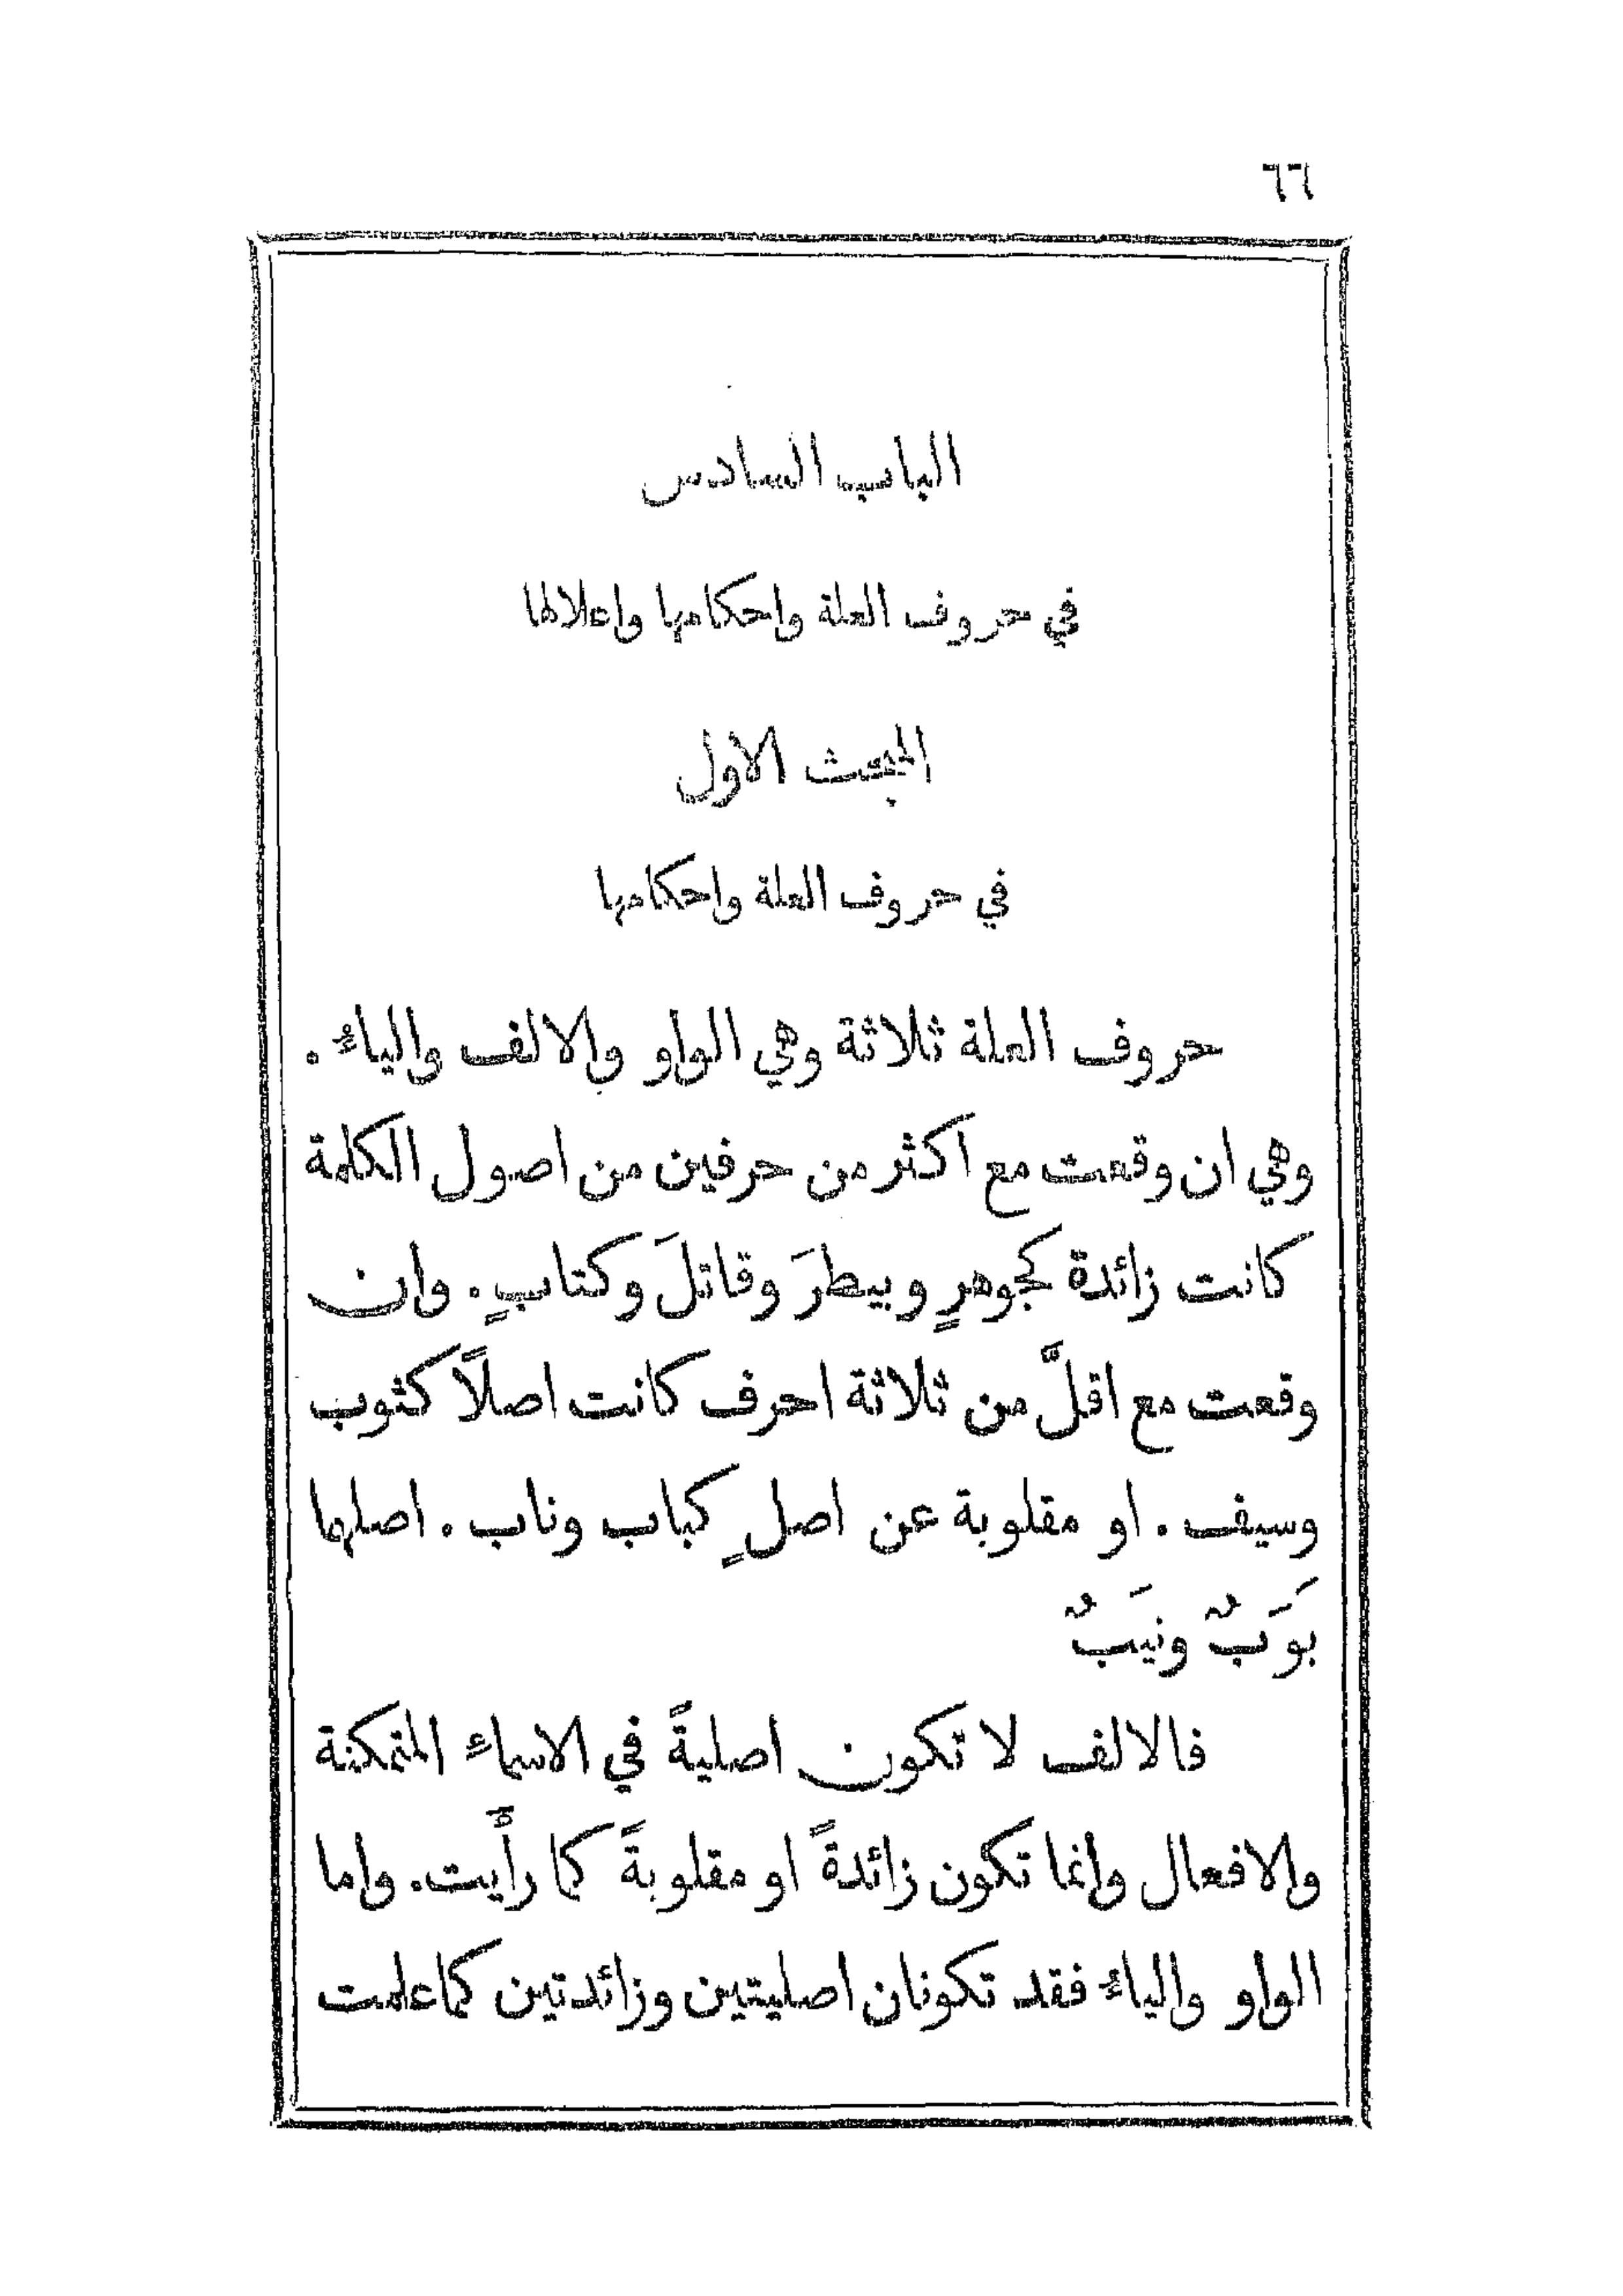 ٦٦
الباب السادس
في حروف العلة واحكامها واعلالها
المبحث الاول
في حروف العلة واحكامها
حروف العلة ثلاثة وهي الواو والالف والياء .
وهي ان وقعت مع اكثر من حرفين من اصول الكلمة
كانت زائدة كجوهرٍ وبيطرَ وقاتلَ وكتابٍ . وان
وقعت مع اقلَّ من ثلاثة احرف كانت اصلاً كثوب
وسيف . او مقلوبة عن اصلٍ كباب وناب . اصلهما
بَوَبٌ ونيَبٌ
فالالف لا تكون اصليةً في الاسماء المتمكنة
والافعال وانما تكون زائدةً او مقلوبةً كما رأَيت . واما
الواو والياء فقد تكونان اصليتين وزائدتين كما علمت